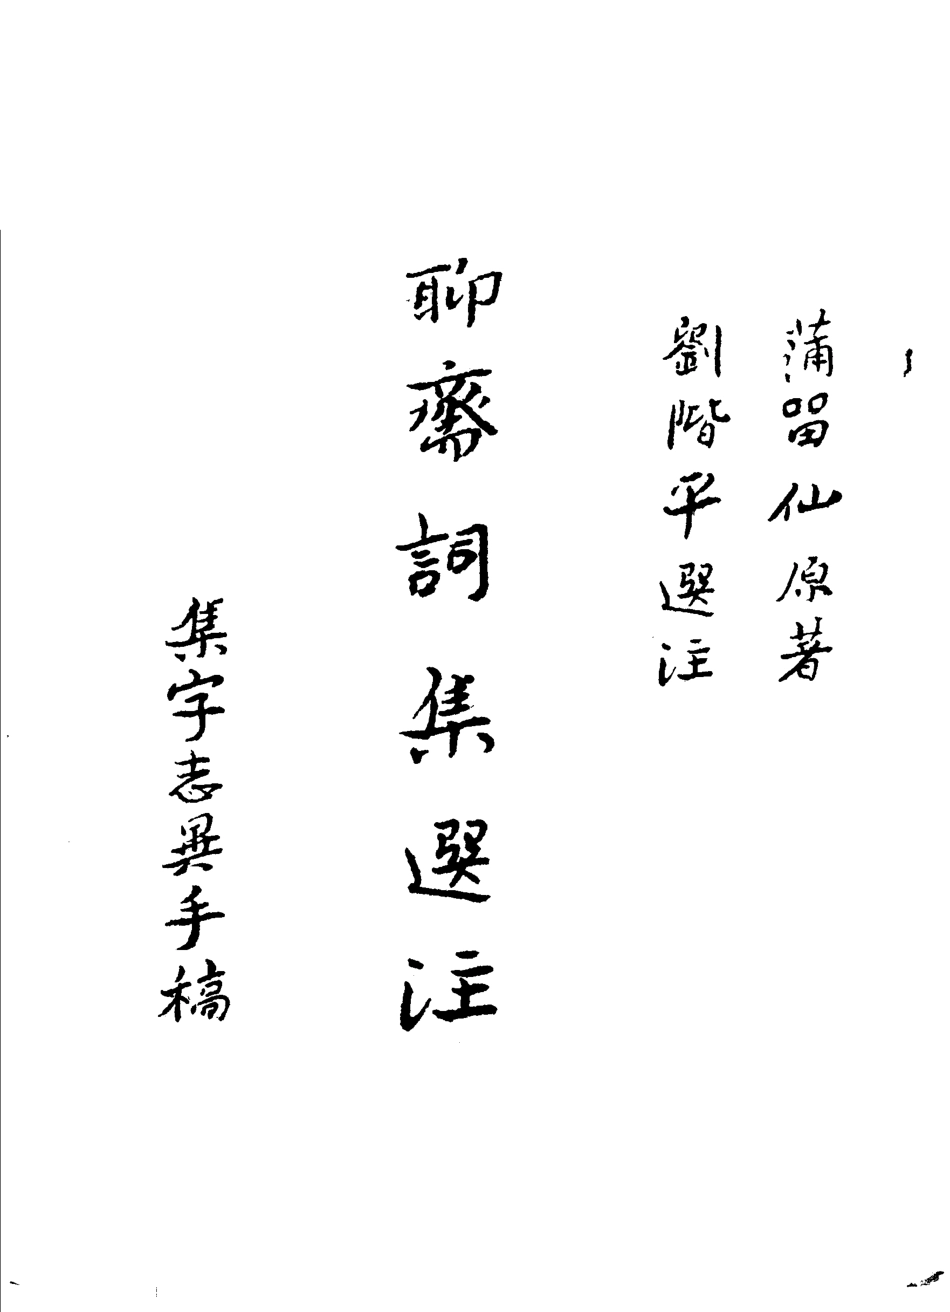 蒲畱仙原著
劉階平選注
聊齋詞集選注
集字志異手稿